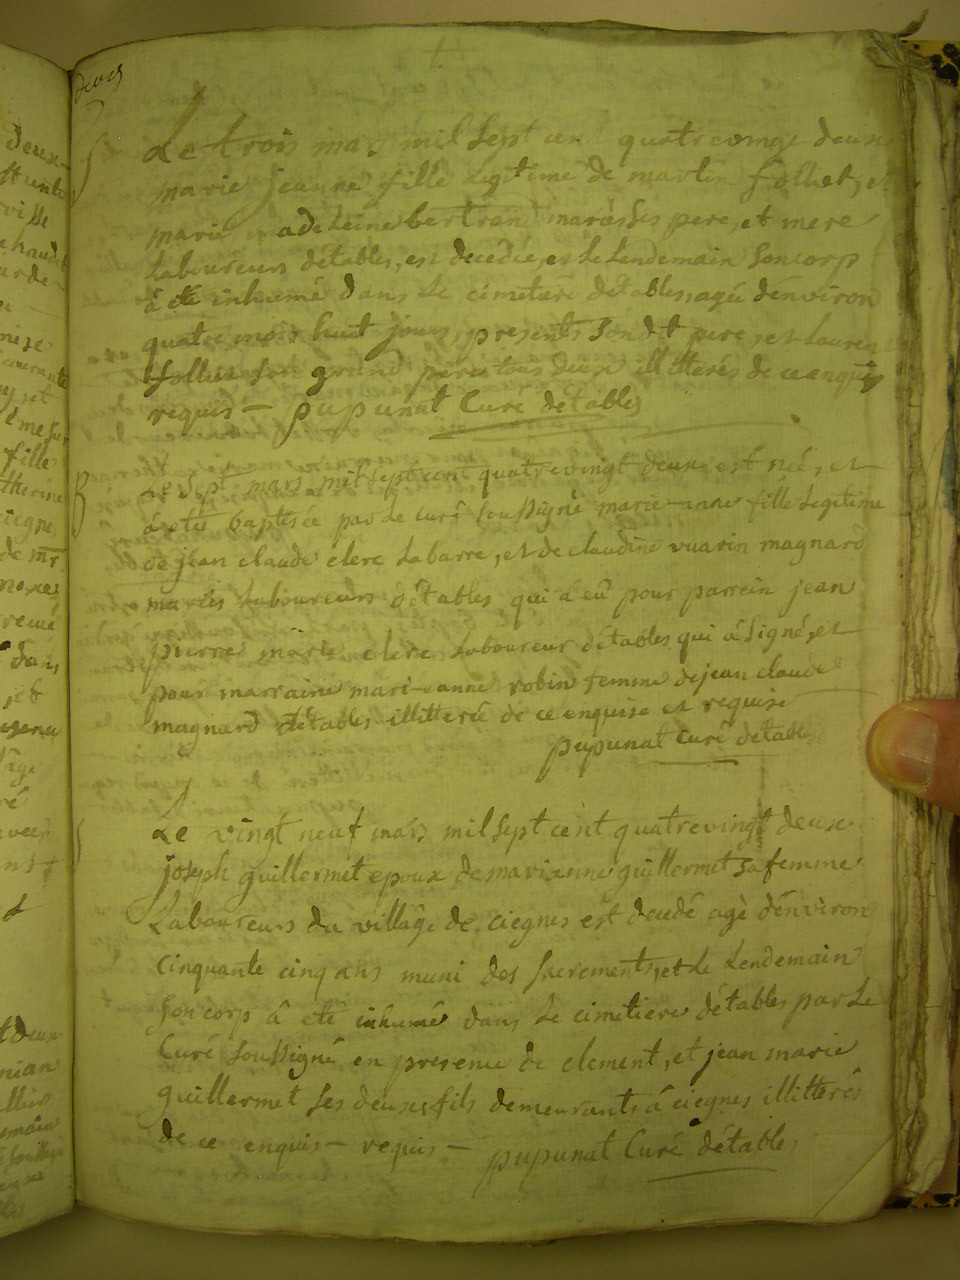 deux
S
Le trois mars mil sept cent quatrevingt deux
marie jeanne fille legitime de martin folliet, et
marie madeleine bertrand mariés ses pere, et mere
Laboureurs détables, est decedée, et le Lendemain son corp
à été inhumé dans le cimetiere détables, agée denviron
quatre mois huit jours, presents son dt pere, et Laurent
follier son grand pere tous deux illitterés de ce enquis
requis — pupunat Curé détables
B
Le sept mars mil sept cent quatrevingt deux est née, et
à etée baptisée par le curé soussigné marie-anne fille Legitime
de jean claude clerc Labarre, et de claudine vuarin magnard
mariés Laboureurs détables qui à eû pour parrein jean
pierre marie clerc Laboureur détables qui à signé, et
pour marraine mari-anne robin femme de jean claude
magnard détables illitterée de ce enquise et requise
pupunat Curé détables
S
Le vingt neuf mars mil sept cent quatrevingt deux
joseph guillermet epoux de marianne guillermet sa femme
Laboureurs du villâge de ciegnes est decedé agé dénviron
Cinquante cinq ans muni des sacrements, et le Lendemain
son corp â eté inhumé dans le cimetiere détables par le
Curé soussigné en presence de clement, et jean marie
guillermet ses deux fils demeurants à ciegnes illitterés
de ce enquis — requis —
pupunat Curé détables